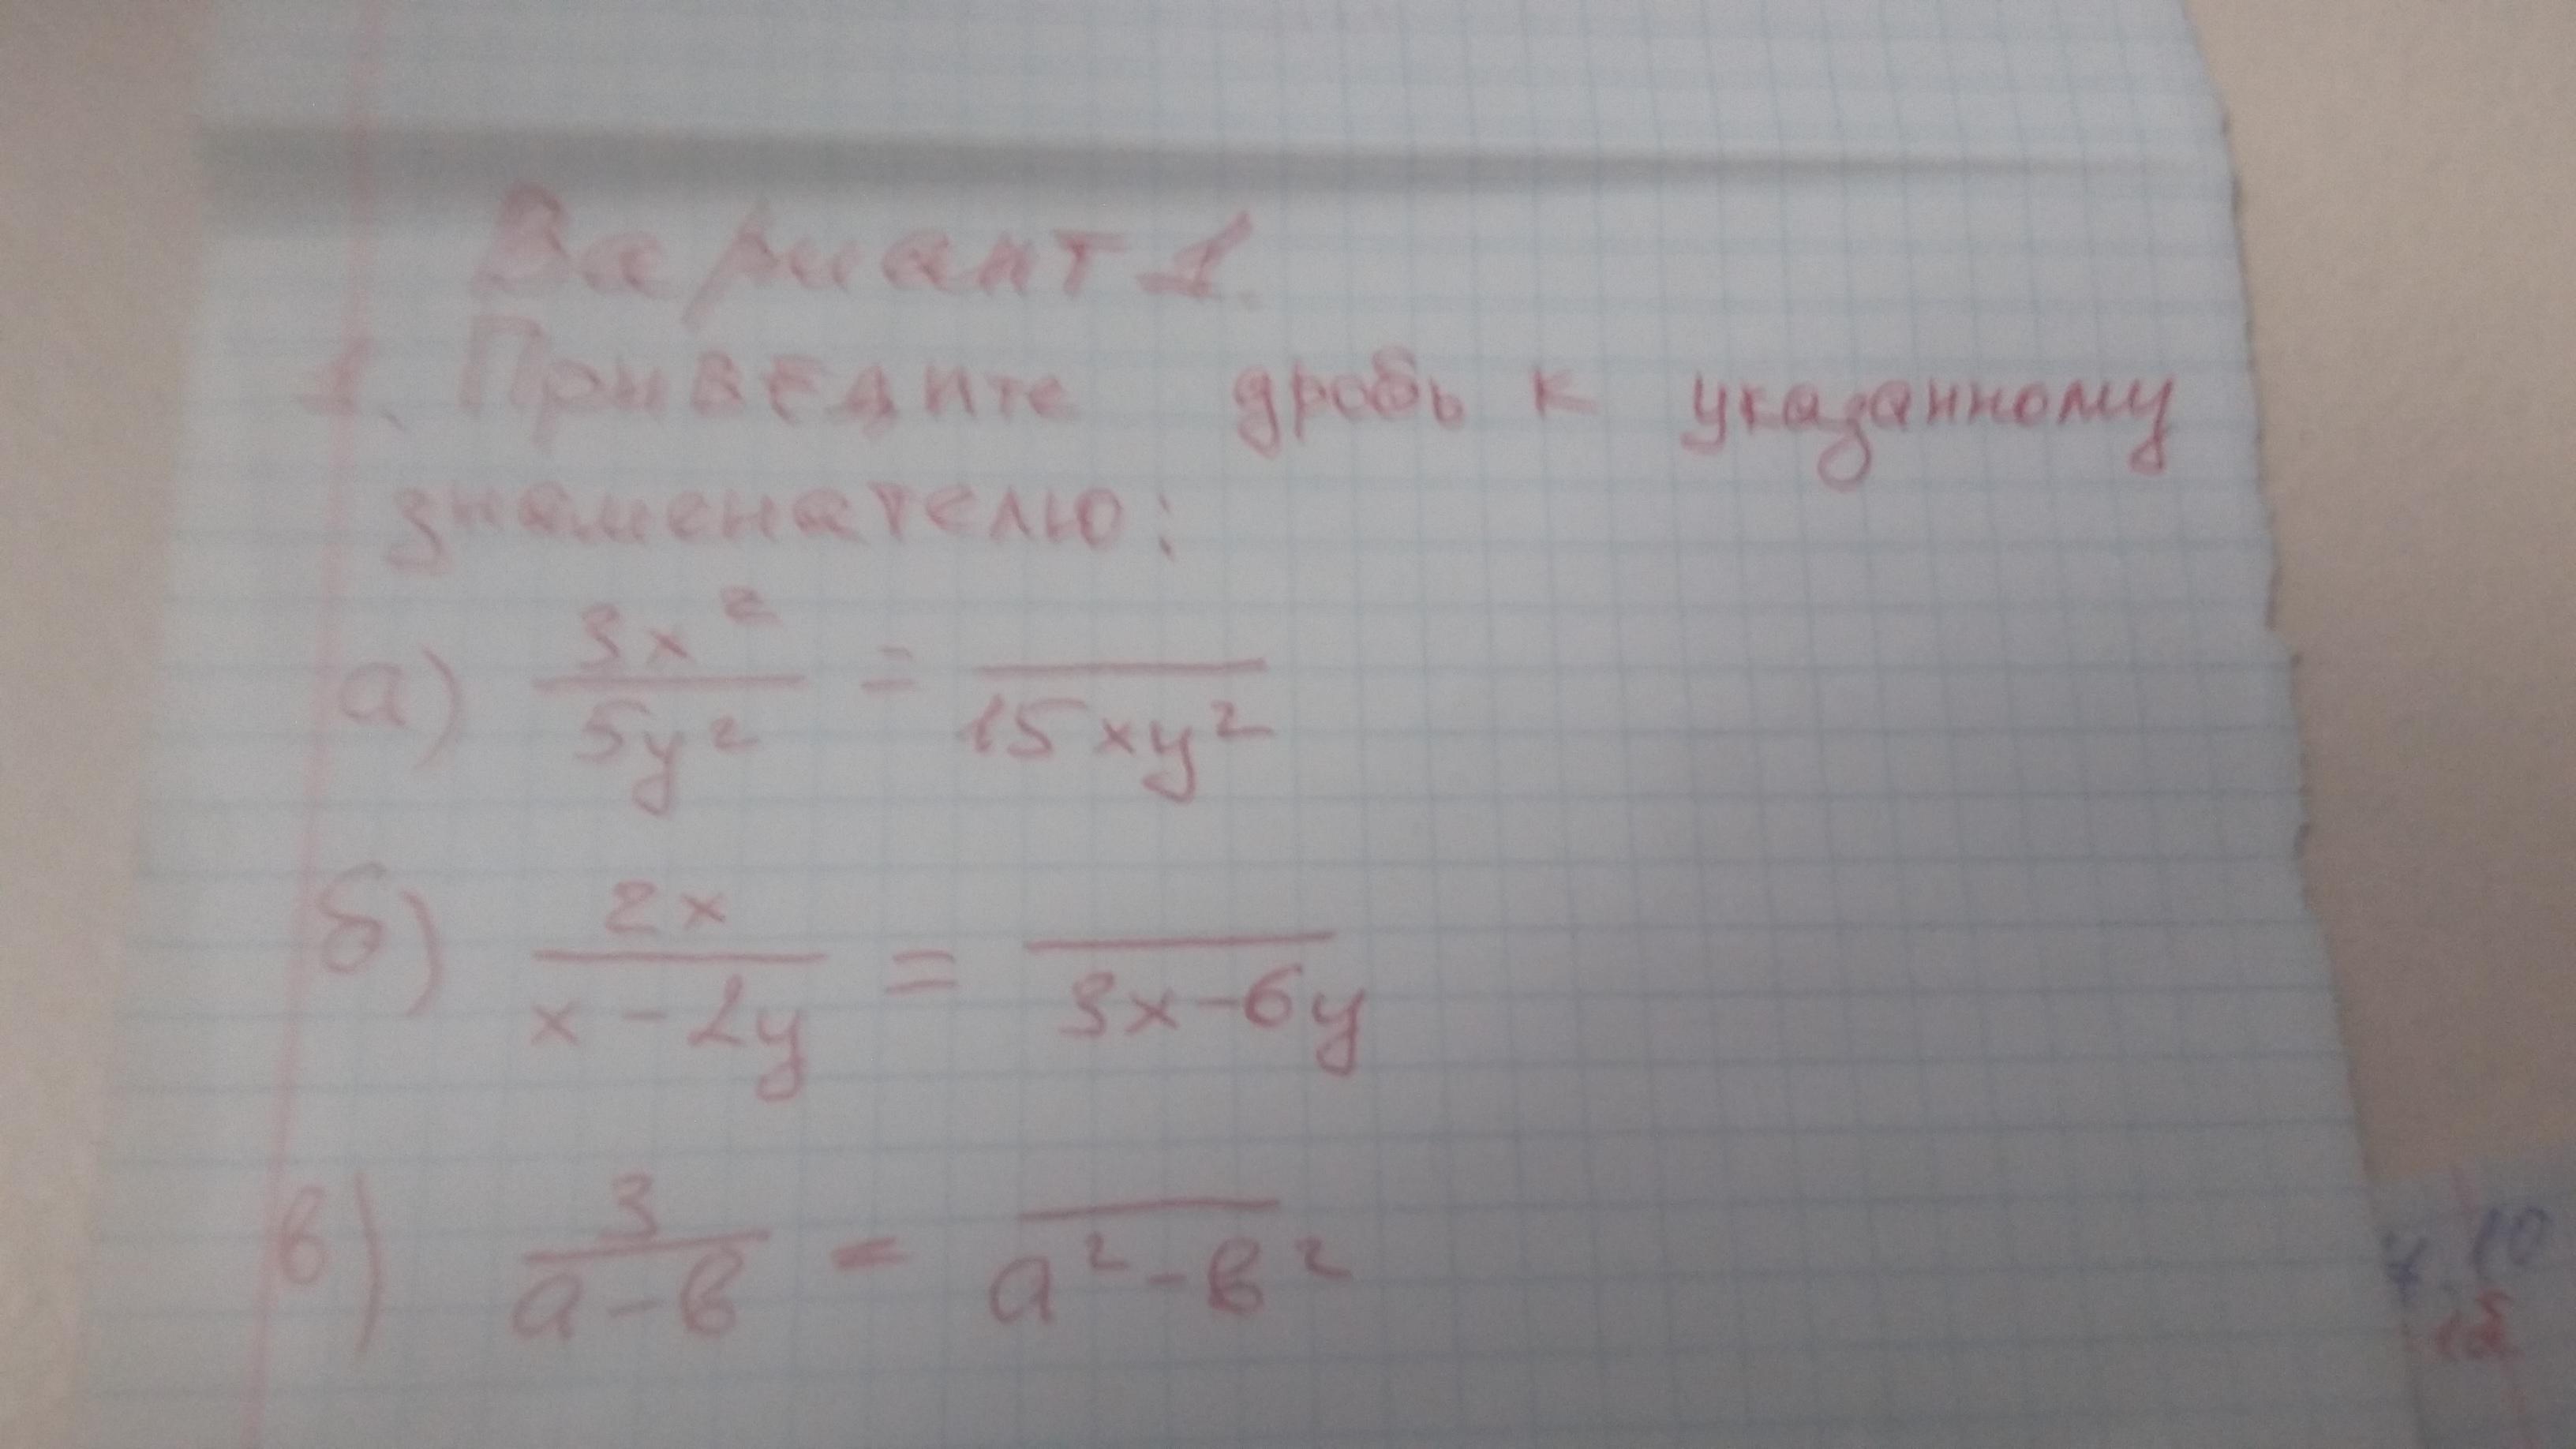 Вариант 1.
1. Приведите дробь к указанному
знаменателю:
а) 3x²/5y² = /15xy²
б) 2x/x-2y = /3x-6y
в) 3/a-в = /a²-в²